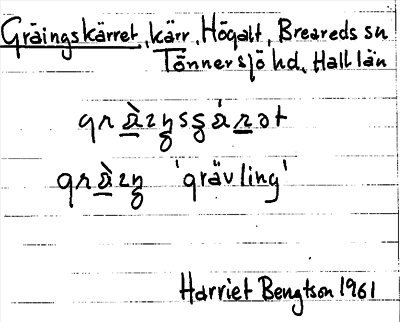 Gräingskärret, kärr, Högalt, Breareds sn
Tönnersjö hd, Hall län
'grävling'
Harriet Bengtson 1961